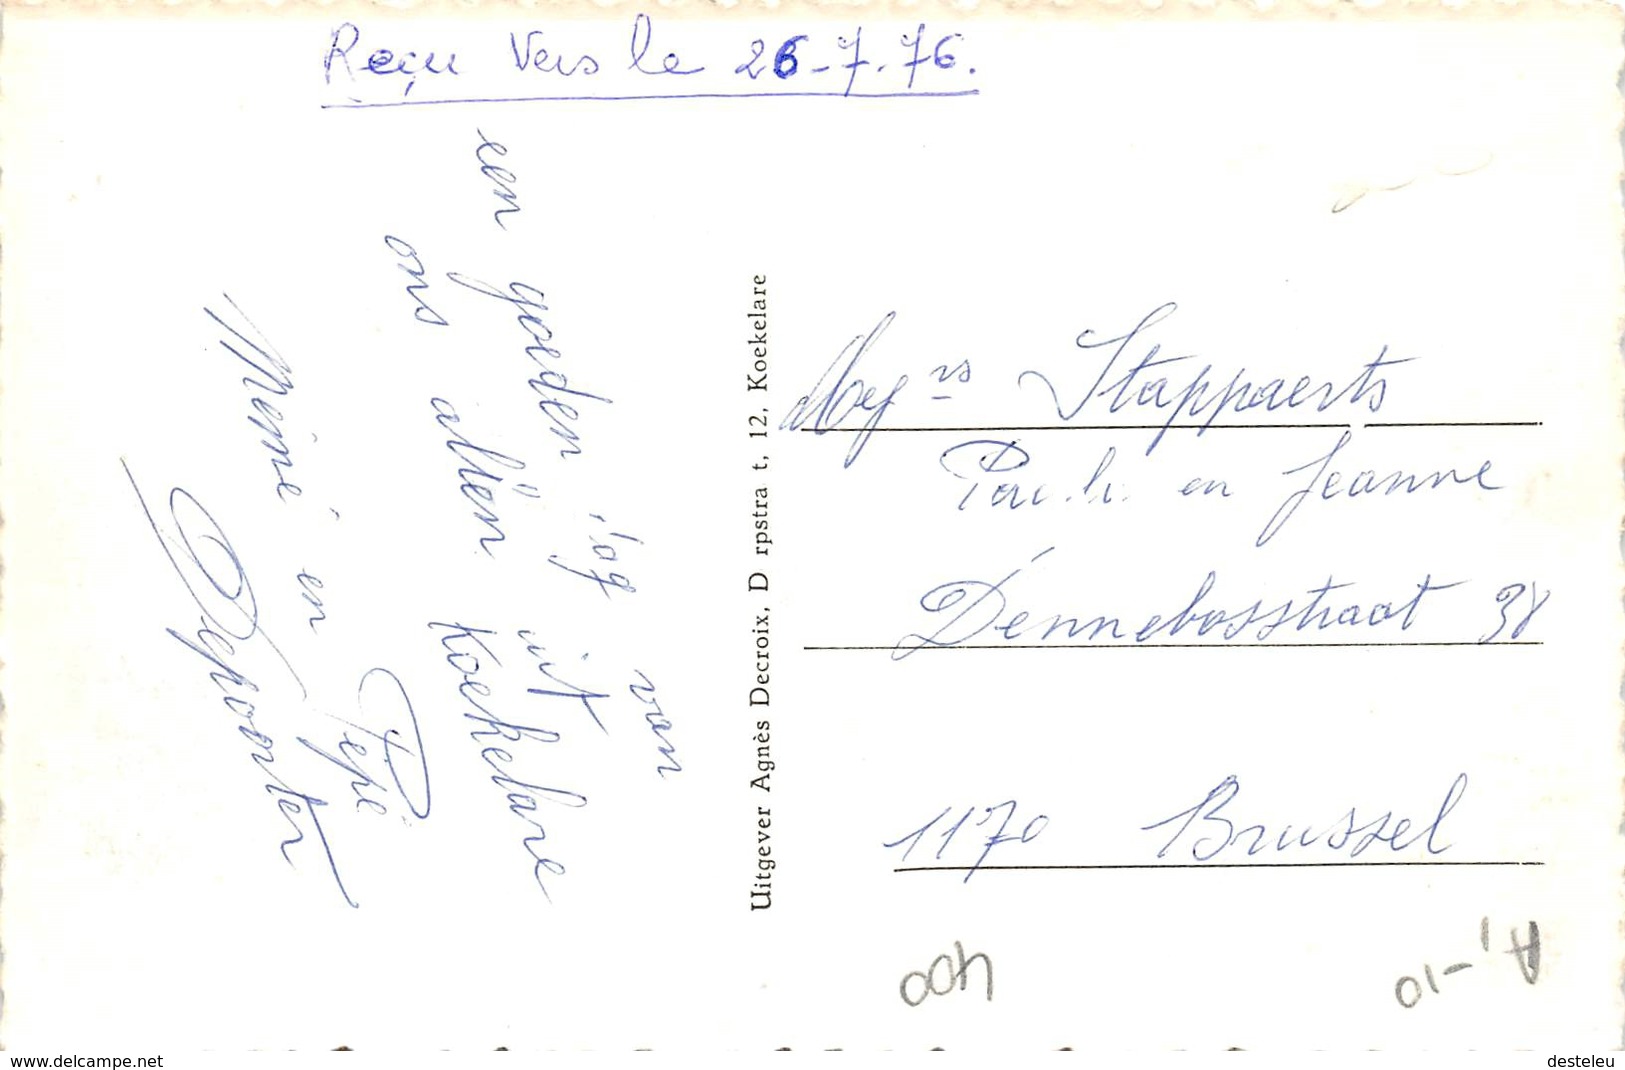 Reçu Vers le 26-7-76.
een goeden dag van
ons allen uit
Koekelare
Mémé en Pepé
Depoorter
Uitgever Agnès Decroix, D rpstra t, 12, Koekelare
Stappaerts
en Jeanne
Dennebosstraat 38
1170 Brussel
400
A,-10
www.delcampe.net
desteleu